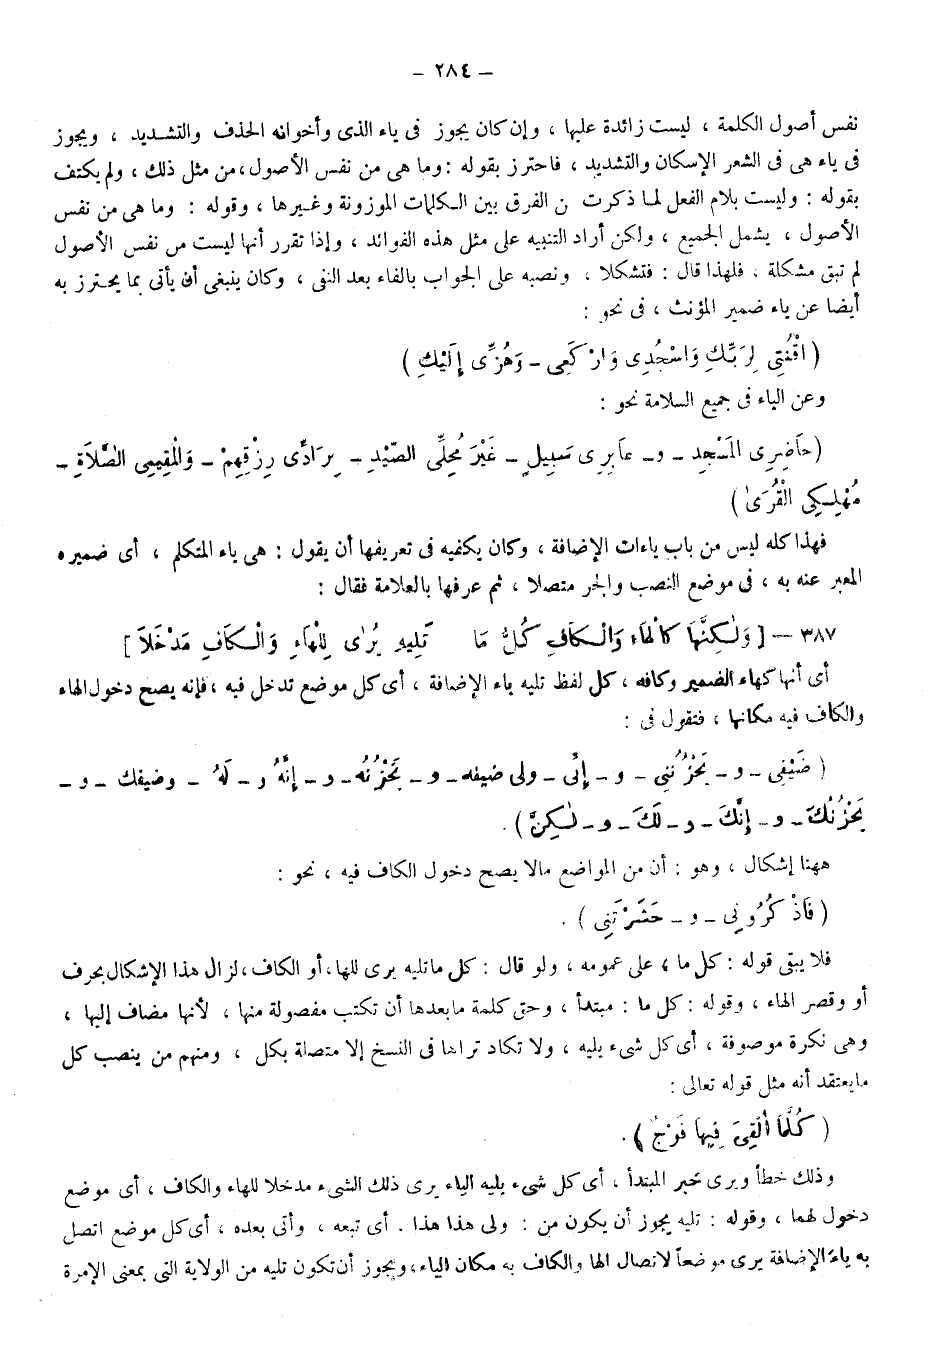 – ٢٨٤ –
نفس أصول الكلمة ، ليست زائدة عليها ، وإن كان يجوز فى ياء الذى وأخواته الحذف والتشديد ، ويجوز
فى ياء هى فى الشعر الإسكان والتشديد ، فاحترز بقوله : وما هى من نفس الأصول ، من مثل ذلك ، ولم يكتف
بقوله : وليست بلام الفعل لما ذكرت ن الفرق بين الكلمات الموزونة وغيرها ، وقوله : وما هى من نفس
الأصول ، يشمل الجميع ، ولكن أراد التنبيه على مثل هذه الفوائد ، وإذا تقرر أنها ليست من نفس الأصول
لم تبق مشكلة ، فلهذا قال : فتشكلا ، ونصبه على الجواب بالفاء بعد النفى ، وكان ينبغى أن يأتى بما يحترز به
أيضا عن ياء ضمير المؤنث ، فى نحو :
( اقْنُتِى لِرَبِّكِ وَاسْجُدِى وَارْكَعِى – وَهُزِّى إِلَيْكِ )
وعن الياء فى جميع السلامة نحو :
(حَاضِرِى المَسْجِدِ – و – عَابِرِى سَبِيلٍ – غَيْرَ مُحِلِّى الصَّيْدِ – بِرَادِّى رِزْقِهِمْ – وَالْمُقِيمِى الصَّلاَةِ –
مُهْلِكِى الْقُرَىٰ )
فهذا كله ليس من باب ياءات الإضافة ، وكان يكفيه فى تعريفها أن يقول : هى ياء المتكلم ، أى ضميره
المعبر عنه به ، فى موضع النصب والجر متصلا ، ثم عرفها بالعلامة فقال :
٣٨٧ – [ وَلٰكِنَّهَا كَالْهَاءِ وَالْكَافِ كُلُّ مَا تَلِيهِ يُرٰى لِلْهَاءِ وَالْكَافِ مَدْخَلاَ ]
أى أنها كهاء الضمير وكافه ، كل لفظ تليه ياء الإضافة ، أى كل موضع تدخل فيه ، فإنه يصح دخول الهاء
والكاف فيه مكانها ، فتقول فى :
( ضَيْفِى – و – يَحْزُنُنِى – و – إِنِّى – ولى ضيفه – و – يَحْزُنُه – و – إِنَّهُ و – لَهُ – وضيفك – و –
يَحْزُنْكَ – و – إِنَّكَ – و – لَكَ – و – لٰكِنَّ ) .
ههنا إشكال ، وهو : أن من المواضع مالا يصح دخول الكاف فيه ، نحو :
( فَاذْكُرُونِى – و – حَشَرْتَنِى ) .
فلا يبقى قوله : كل ما ، على عمومه ، ولو قال : كل ماتليه يرى للها ، أو الكاف ، لزال هذا الإشكال بحرف
أو وقصر الهاء ، وقوله : كل ما : مبتدأ ، وحق كلمة مابعدها أن تكتب مفصولة منها ، لأنها مضاف إليها ،
وهى نكرة موصوفة ، أى كل شىء يليه ، ولا تكاد تراها فى النسخ إلا متصلة بكل ، ومنهم من ينصب كل
مايعتقد أنه مثل قوله تعالى :
( كُلَّمَا أُلْقِىَ فِيهَا فَوْجٌ ) .
وذلك خطأ ويرى خبر المبتدأ ، أى كل شىء يليه الياء يرى ذلك الشىء مدخلا للهاء والكاف ، أى موضع
دخول لهما ، وقوله : تليه يجوز أن يكون من : ولى هذا هذا . أى تبعه ، وأتى بعده ، أى كل موضع اتصل
به ياء الإضافة يرى موضعاً لاتصال الها والكاف به مكان الياء ، ويجوز أن تكون تليه من الولاية التى بمعنى الإمرة